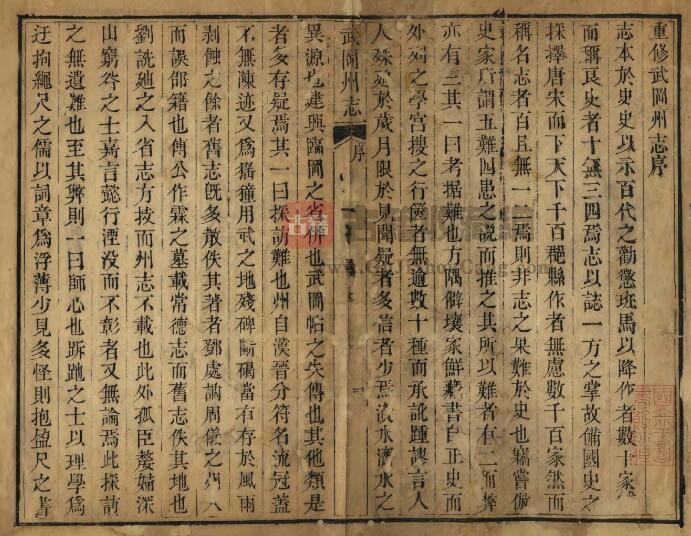 重修武岡州志序
志本於史史以示百代之勸懲班馬以降作者數十家
而稱良史者十無三四焉志以誌一方之掌故備國史之
採擇唐宋而下天下千百郡縣作者無慮數千百家然而
稱名志者百且無一二焉則非志之果難於史也竊嘗倣
史家所謂五難四患之說而推之其所以難者有二而弊
亦有三其一曰考据難也方隅僻壤家鮮藏書自正史而
外列之學宮搜之行篋者無逾數十種而承訛踵謬言人
人殊疑於歲月限於見聞疑者多信者少焉 水濟水之
武岡州志
序
異源也建興臨岡之省併也武岡帖之失傳也其他類是
者多存疑焉其一曰採訪難也州自漢晉分符名流冠蓋
不無陳迹又為猺獞用武之地殘碑斷碣當有存於風雨
剥蝕之餘者舊志旣多散佚其著者鄧處訥周儀之州人
而誤邵籍也傅公作霖之墓載常德志而舊志佚其地也
劉詵 之入省志方技而州志不載也此外孤臣嫠婦深
山窮谷之士嘉言懿行湮没而不彰者又無論焉此採訪
之無遺難也至其弊則一曰師心也跅跎之士以理學為
迂拘繩尺之儒以詞章為浮薄少見多怪則抱盈尺之書
古籍